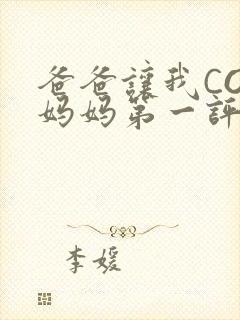 爸爸讓我CO
妈妈第一評
李媛